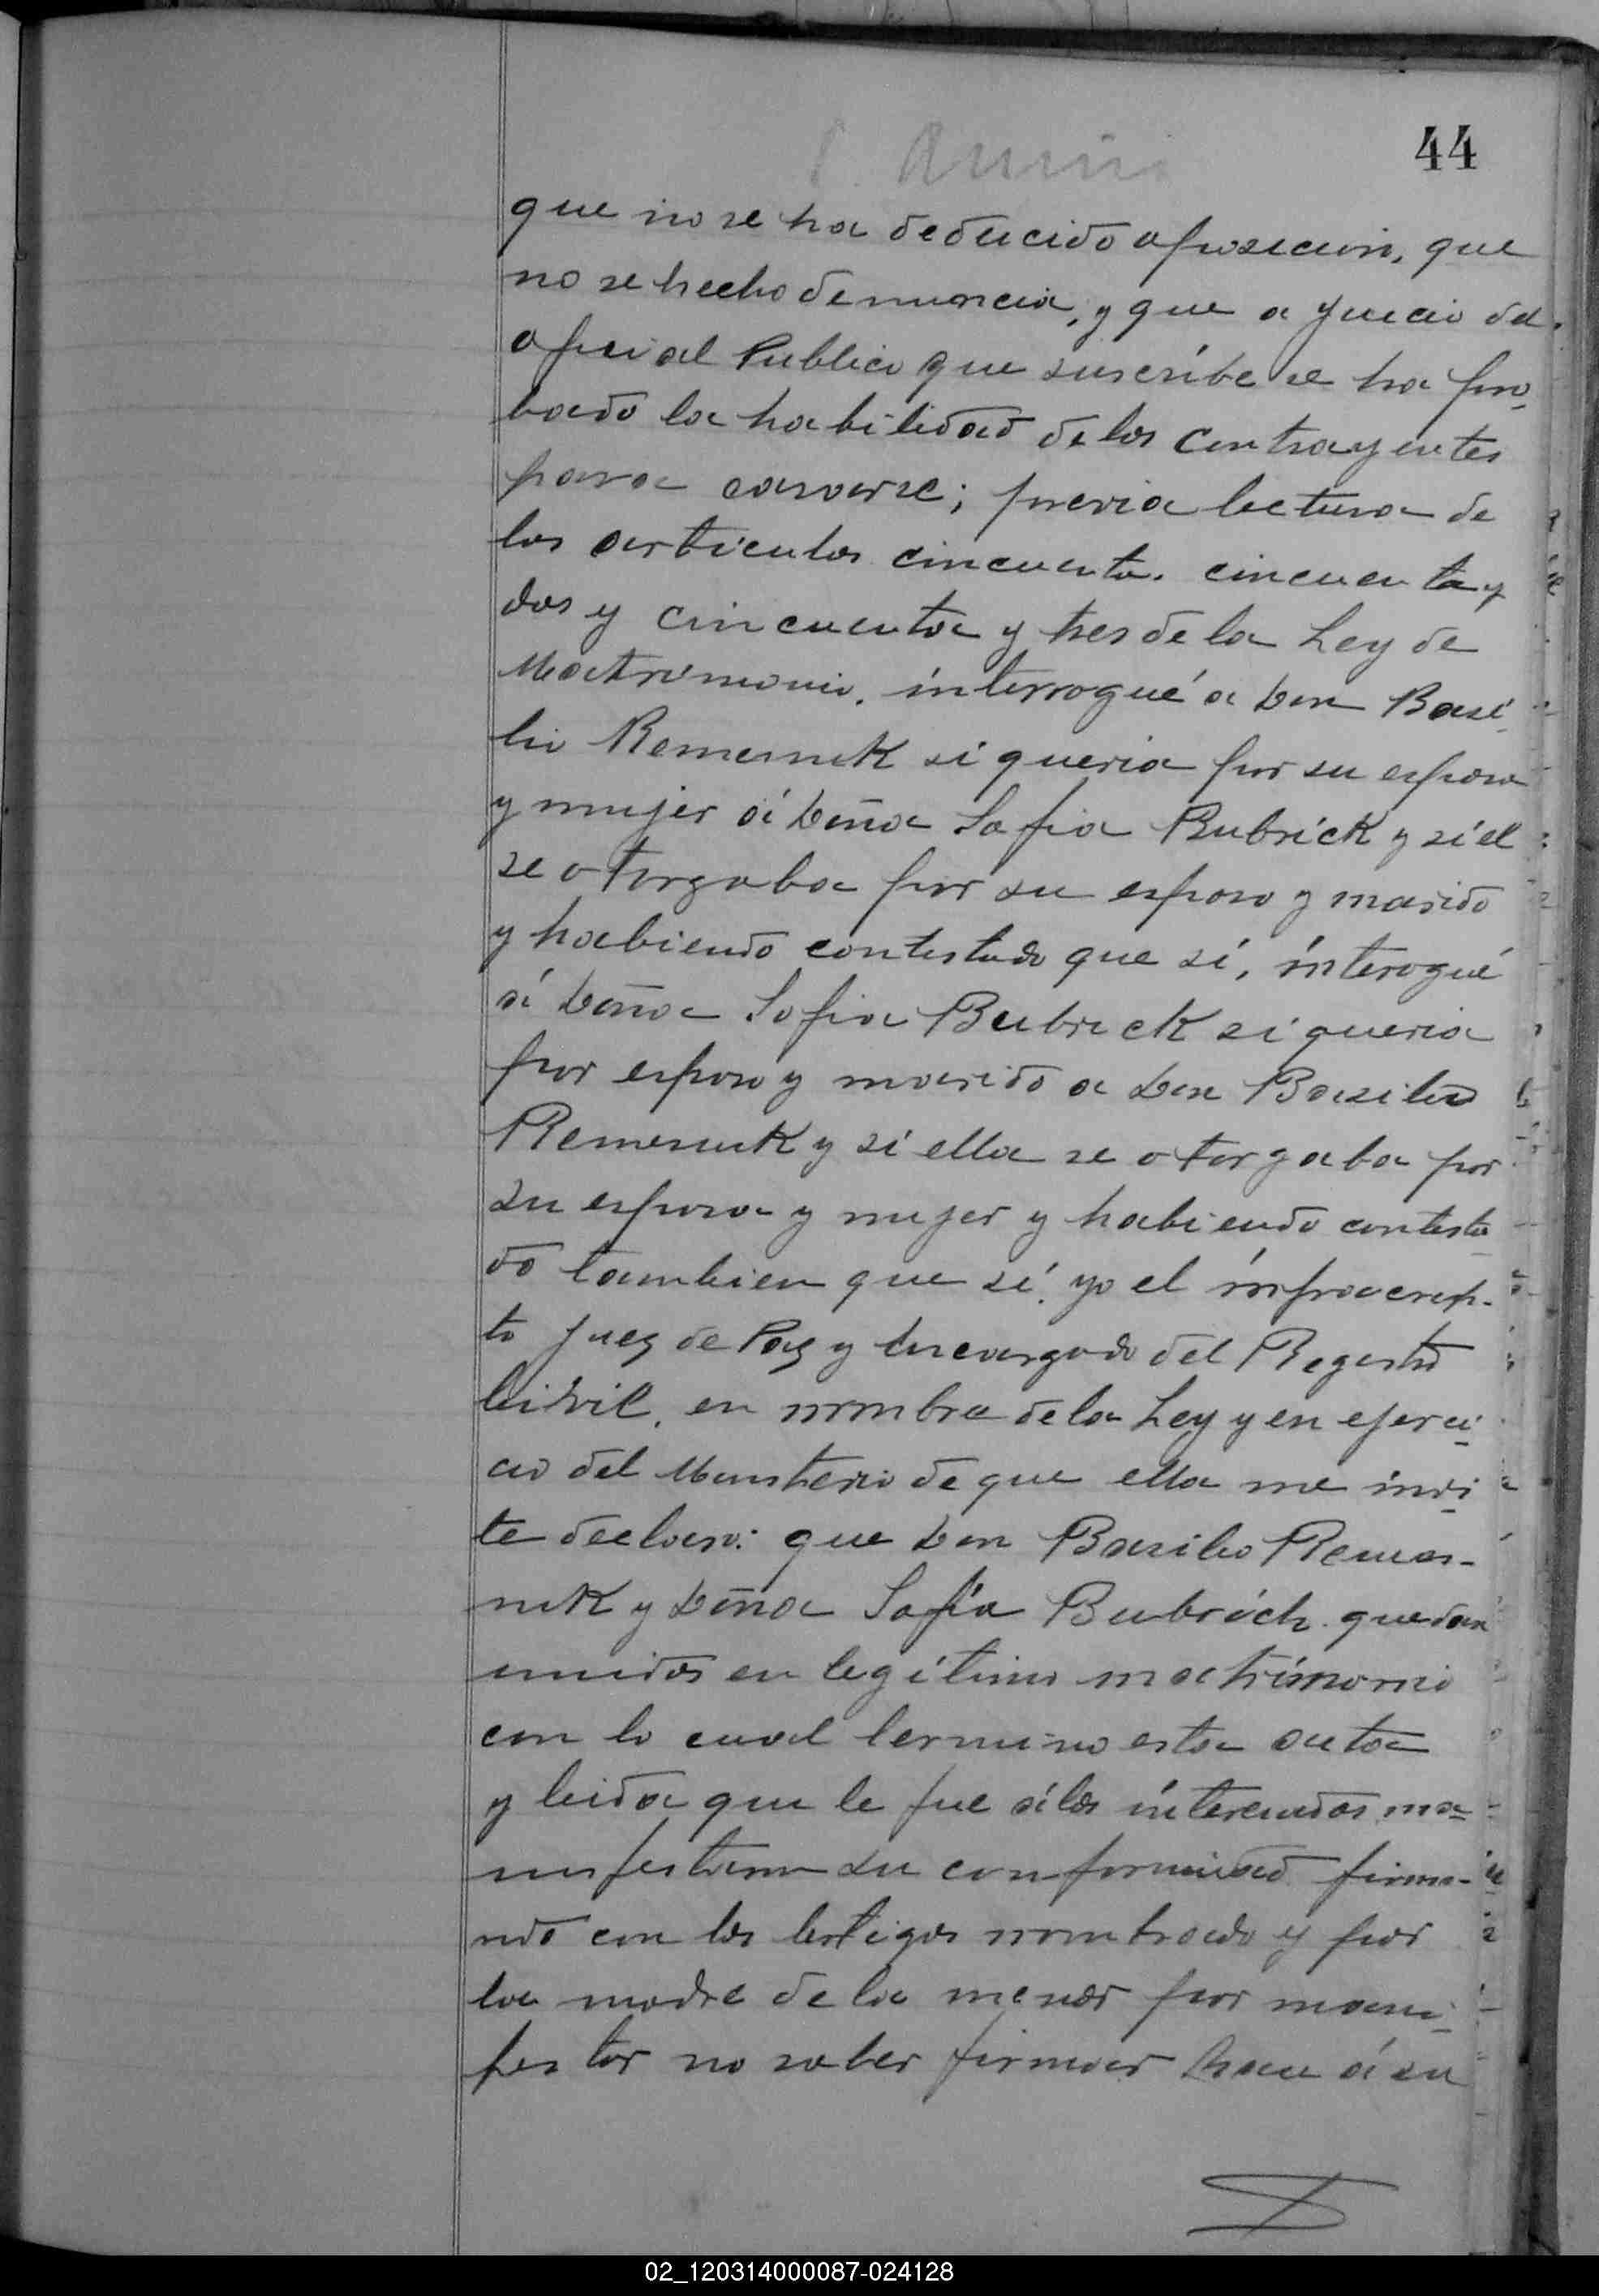 44
que no se ha deducido oposicion, que
no se hecho denuncia, y que a juicio del
oficial Publico que suscribe se ha pro
bado la habilidad de los contrayentes
para casarse; previa lectura de
los articulos cincuenta. cincuenta y
dos y cincuenta y tres de la Ley de
Matrimonio. interrogué a Don Basi
lio Remesnik si queria por su esposa
y mujer á Doña Sofia Bubrick y si el
se otorgaba por su esposo y marido
y habiendo contestado que sí, interogué
á Doña Sofia Bubrick si queria
por esposo y marido a Don Basilio
Remesnik y si ella se otorgaba por
su esposa y mujer y habiendo contesta
do tambien que sí. yo el infrascrip-
to Juez de Paz y Encargado del Registro
Civil. en nombre de la Ley y en ejerci
cio del Ministerio de que ella me invi
te declaro: que Don Basilio Remes-
nik y Doña Sofía Bubrich quedan
unidos en legítimo matrimonio
con lo cual termino esta acta
y leida que le fue á los interesados ma
nifestaron su conformidad firma-
ndo con los testigos nombrado y por
la madre de la menor por mani
festar no saber firmar hace á su
02_120314000087-024128